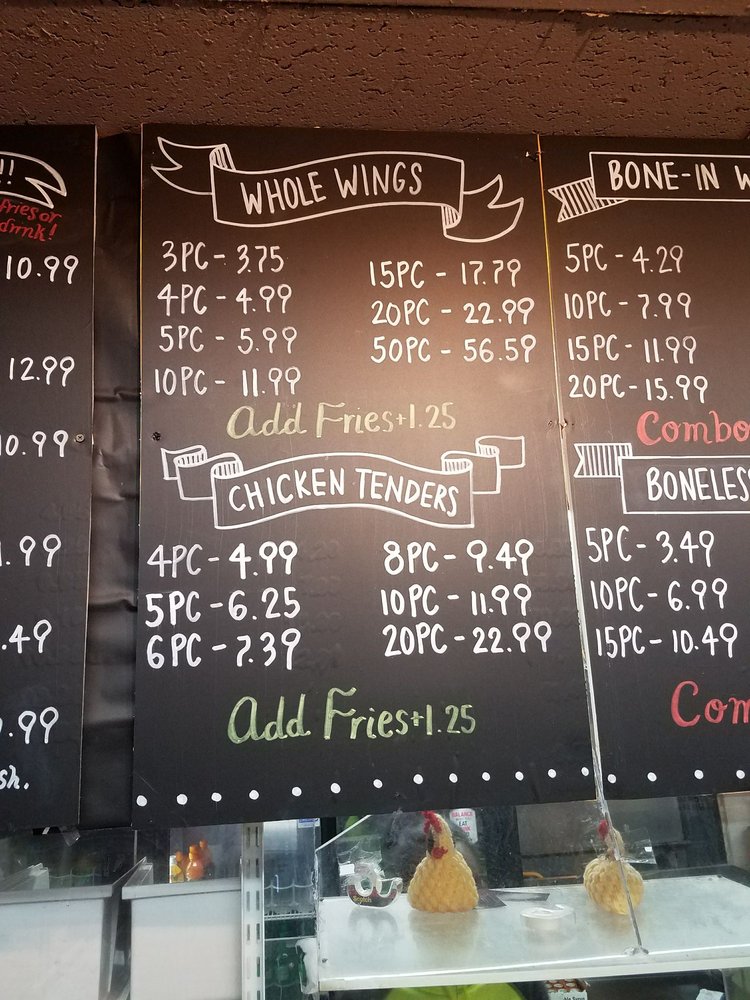 !!
fries or
drink!
10.99
12.99
10.99
.99
.49
.99
sh.
WHOLE WINGS
3PC - 3.75
4PC - 4.99
5PC - 5.99
10PC - 11.99
15PC - 17.79
20PC - 22.99
50PC - 56.59
Add Fries+1.25
CHICKEN TENDERS
4PC - 4.99
5PC - 6.25
6PC - 7.39
8PC - 9.49
10PC - 11.99
20PC - 22.99
Add Fries+1.25
BONE-IN W
5PC - 4.29
10PC - 7.99
15PC - 11.99
20PC - 15.99
Combo
BONELES
5PC - 3.49
10PC - 6.99
15PC - 10.49
Com
BALANCE
EAT
Scotch